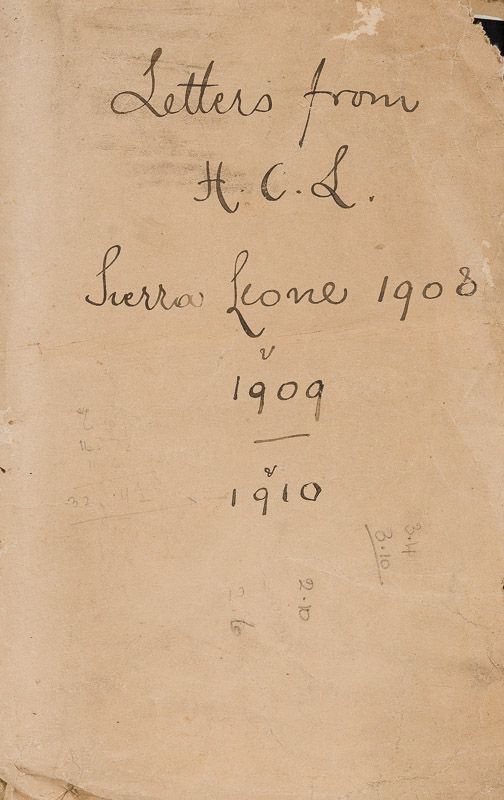 Letters from
H. C. L.
Sierra Leone 1908
&
1909
&
1910
3.4
3.10
2.10